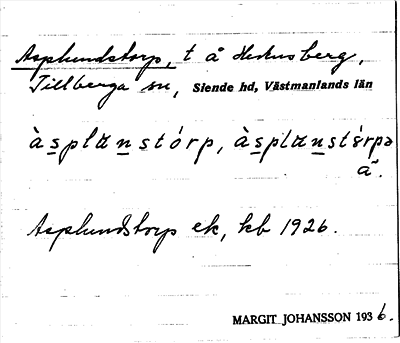 Asplundstorp, t å Hukusberg,
Tillberga sn, Siende hd, Västmanlands län
àsplαnstórp, àsplαnstórpə
ã.
Asplundstorp ek, kb 1926.
MARGIT JOHANSSON 1936.